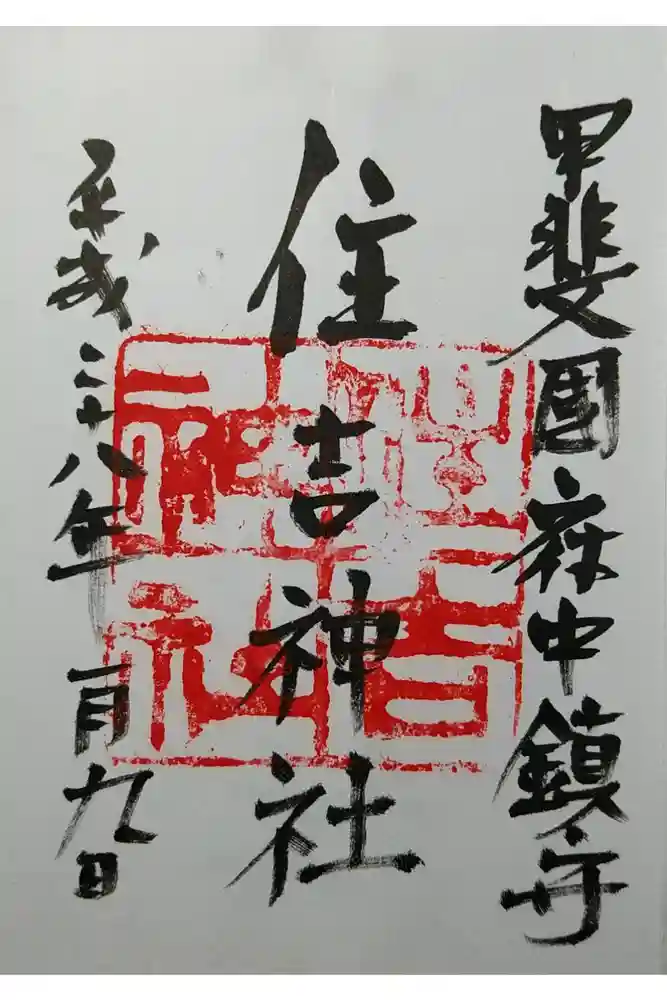 甲斐國府中鎮守
住吉神社
平成二十八年一月九日
住吉
神社